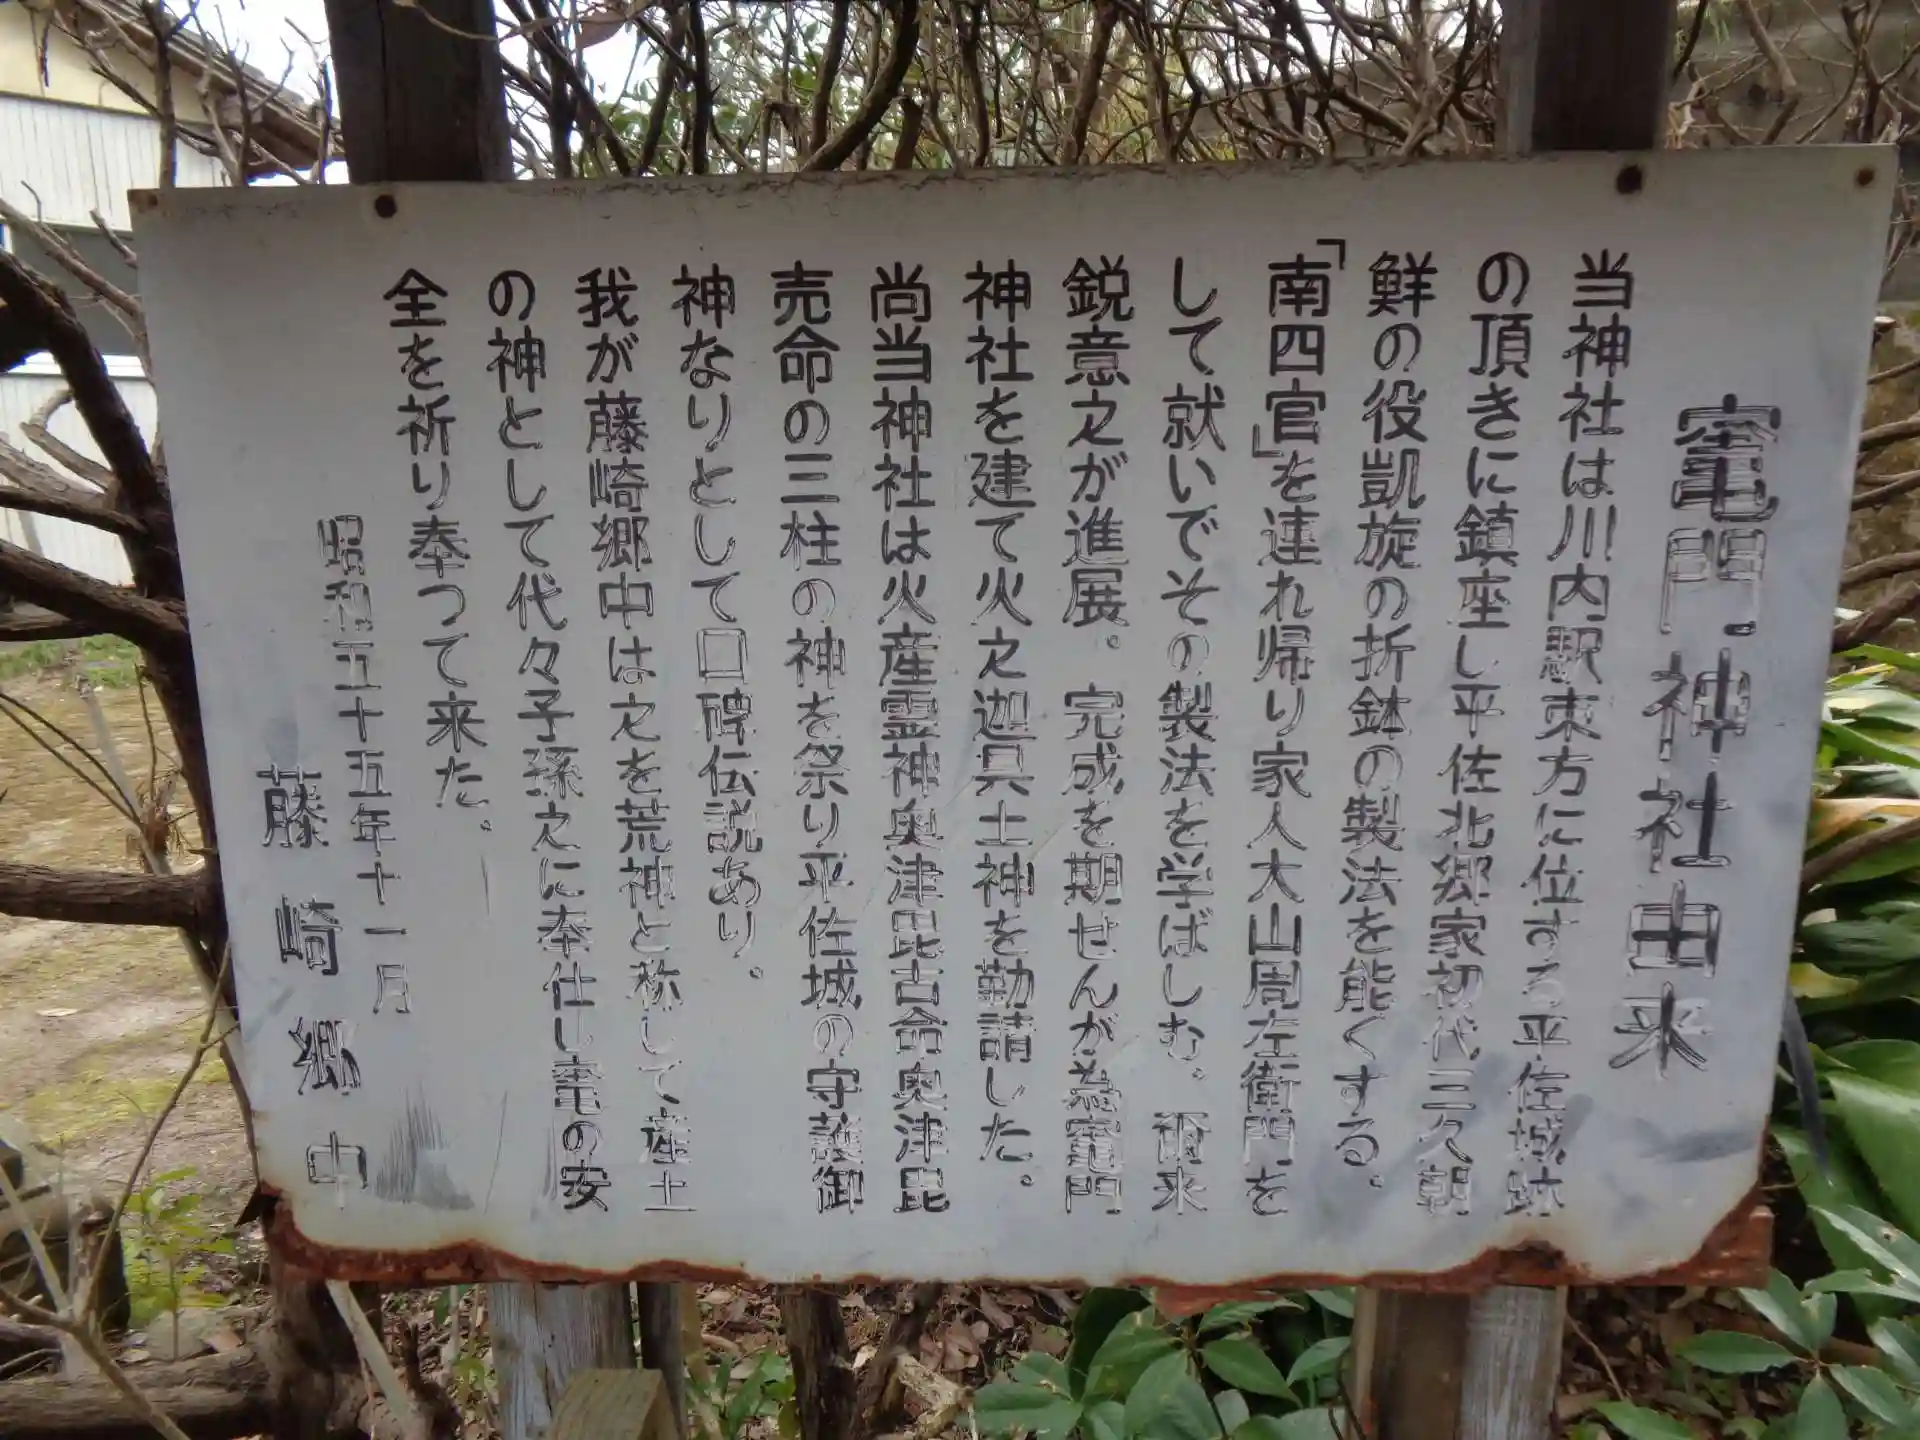 竃門神社由来
当神社は川内駅東方に位する平佐城跡
の頂きに鎮座し平佐北郷家初代三久朝
鮮の役凱旋の折鉢の製法を能くする。
「南四官」を連れ帰り家人大山周左衛門を
して就いでその製法を学ばしむ。爾来
鋭意之が進展。完成を期せんが為竃門
神社を建て火之迦具土神を勧請した。
尚当神社は火産霊神奥津毘古命奥津毘
売命の三柱の神を祭り平佐城の守護御
神なりとして口碑伝説あり。
我が藤崎郷中は之を荒神と称して産土
の神として代々子孫之に奉仕し竃の安
全を祈り奉つて来た。
昭和五十五年十一月
藤崎郷中